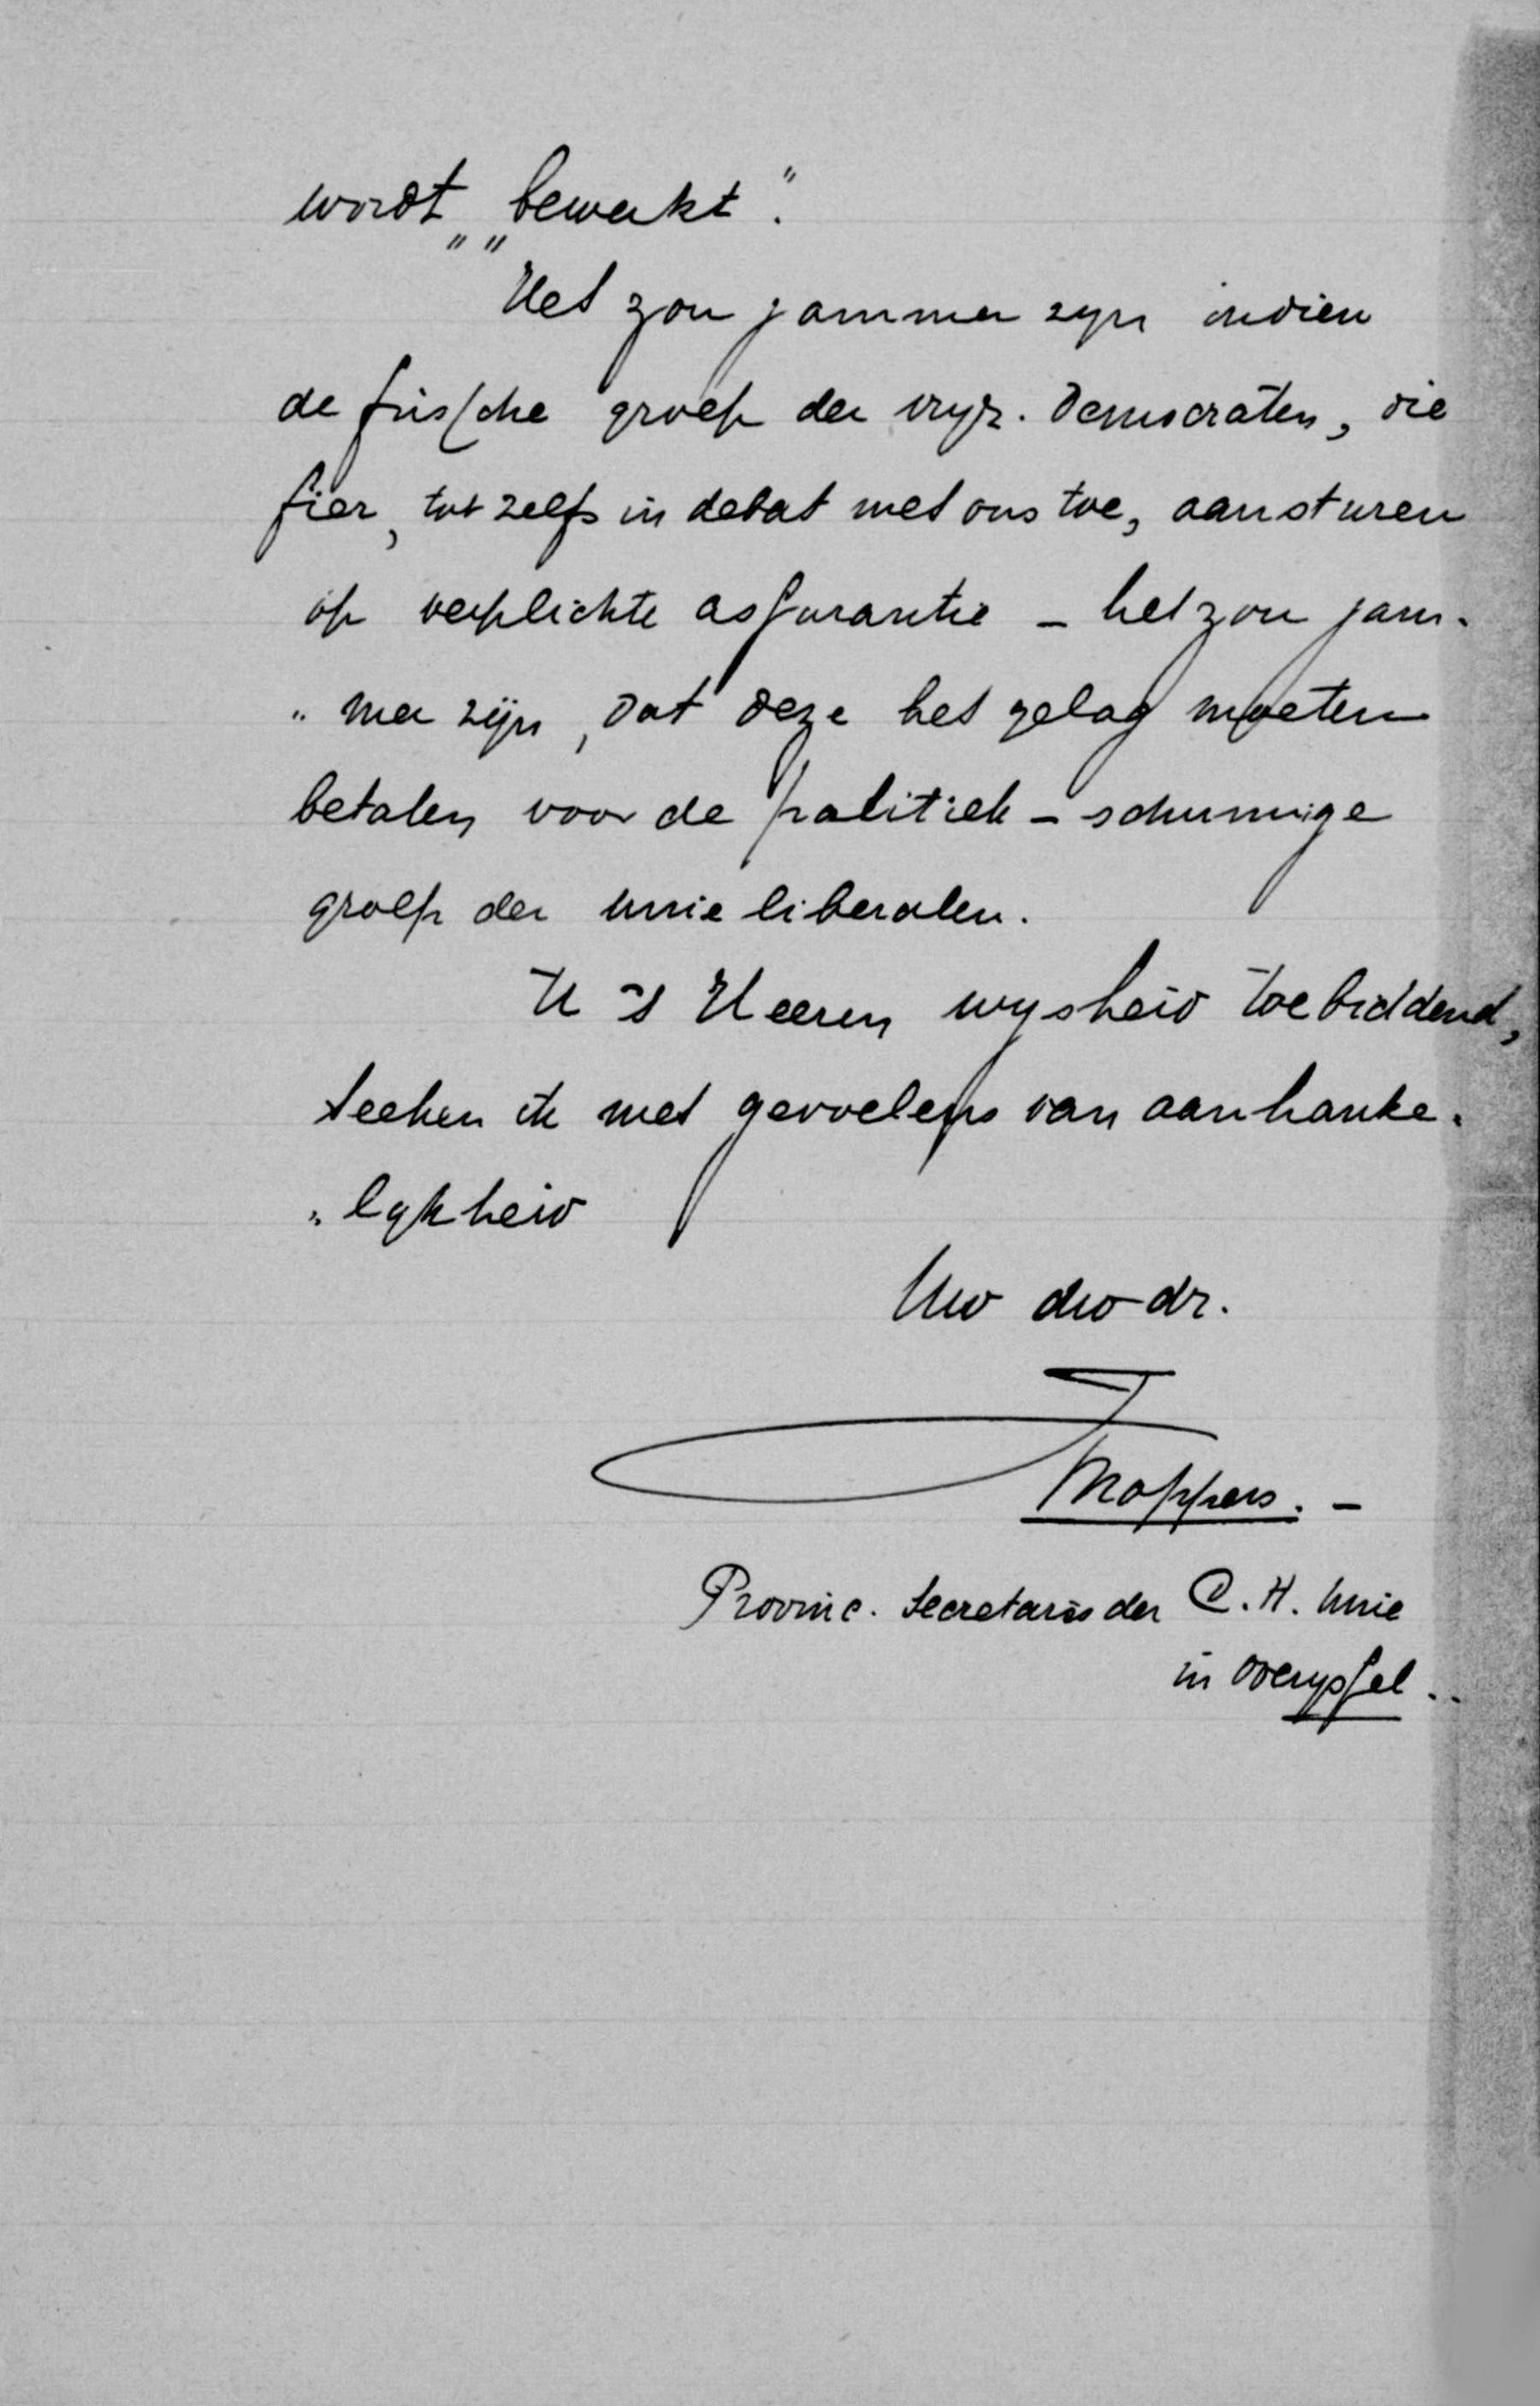 wordt „„bewerkt".
Het zou jammer zijn indien
de frissche groep der vrijz. Democraten, die
fier, tot zelfs in debat met ons toe, aansturen
op verplichte assurantie – het zou jam-
„mer zijn, dat deze het gelag moeten
betalen voor de politiek – schunnige
groep der unie liberalen.
U 's Heeren wysheid toebiddend,
teeken ik met gevoelens van aanhanke-
„lykheid
Uw dw dr.
Moppers. –
Provinc. Secretaris der C. H. Unie
in Overyssel..